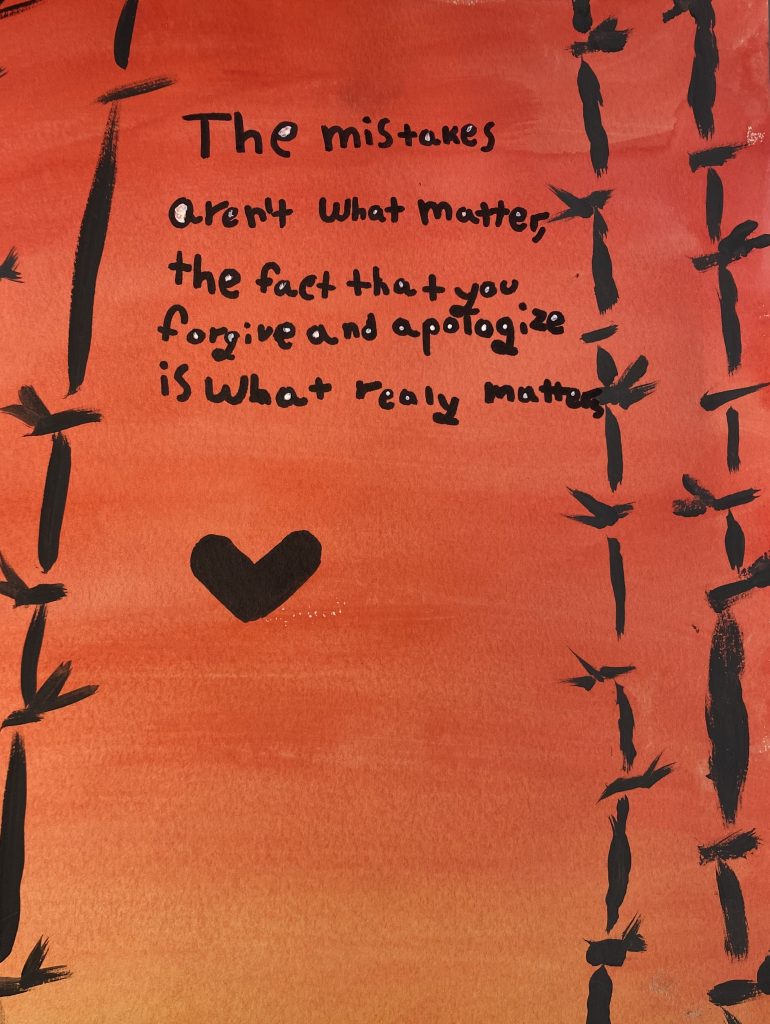 The mistakes
aren't what matter,
the fact that you
forgive and apologize
is what realy matters,